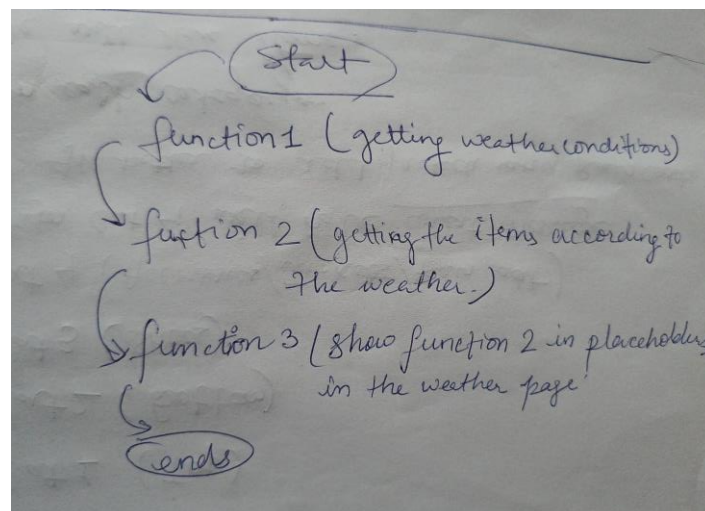 Start
function1 (getting weather conditions)
fuction 2 (getting the items according to
the weather.)
function 3 (show function 2 in placeholders
in the weather page
ends